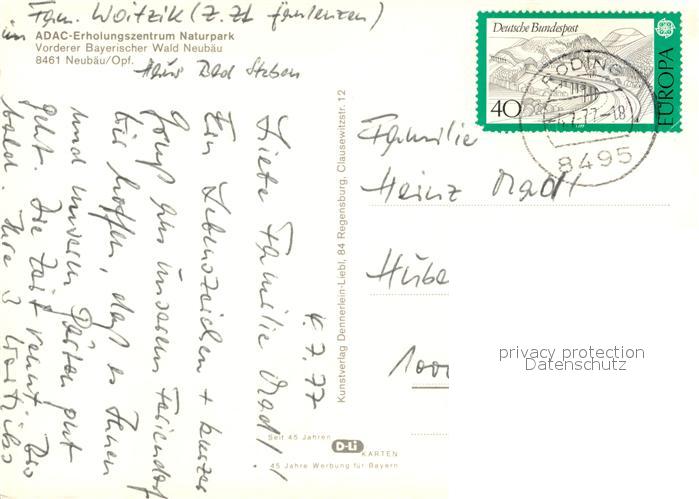 Fam. Woitzik (z.Zt.
im
ADAC-Erholungszentrum Naturpark
Vorderer Bayerischer Wald Neubäu
8461 Neubäu/Opf.
Haus Bad Steben
Deutsche Bundespost
40
EUROPA
RODING
77-18
8495
Familie
Heinz
Hube
1000
privacy protection
Datenschutz
Kunstverlag Dennerlein-Liebl, 84 Regensburg, Clausewitzstr. 12
4.7.77
Liebe Familie
Ein Lebenszeichen + kurzer
Gruß aus unserem Feriendorf
Wir hoffen, daß es Ihnen
und unserm Garten gut
geht. Die Zeit rennt. Bis
bald. Ihre 3 Woitziks
Seit 45 Jahren
D-Li
KARTEN
45 Jahre Werbung für Bayern